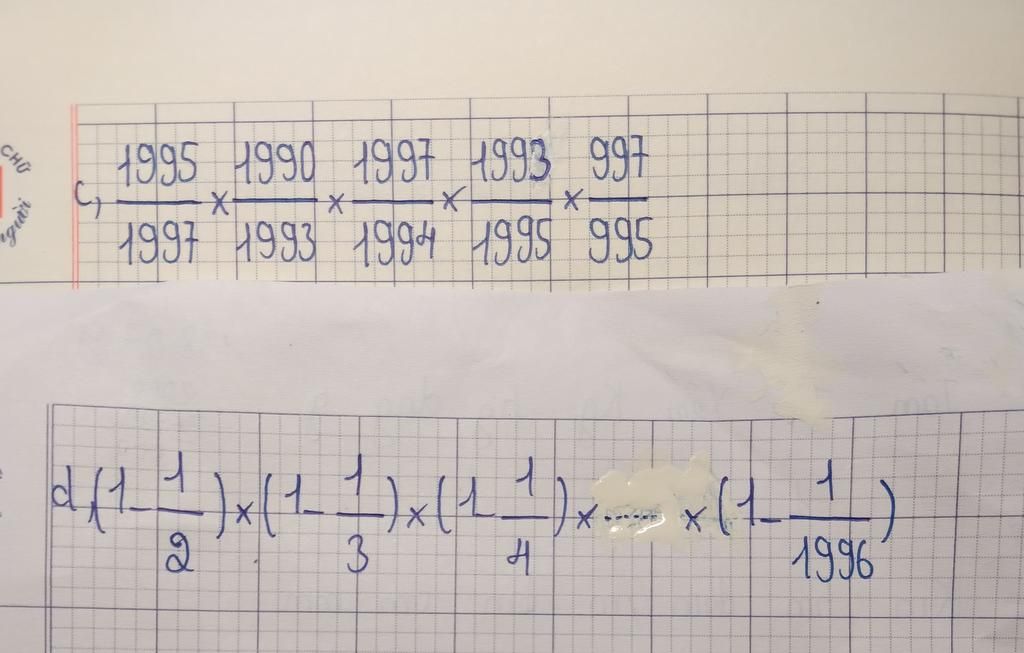 CHỮ
người
c, 1995/1997 × 1990/1993 × 1997/1994 × 1993/1995 × 997/995
d, (1 - 1/2) × (1 - 1/3) × (1 - 1/4) × ...... × (1 - 1/1996)